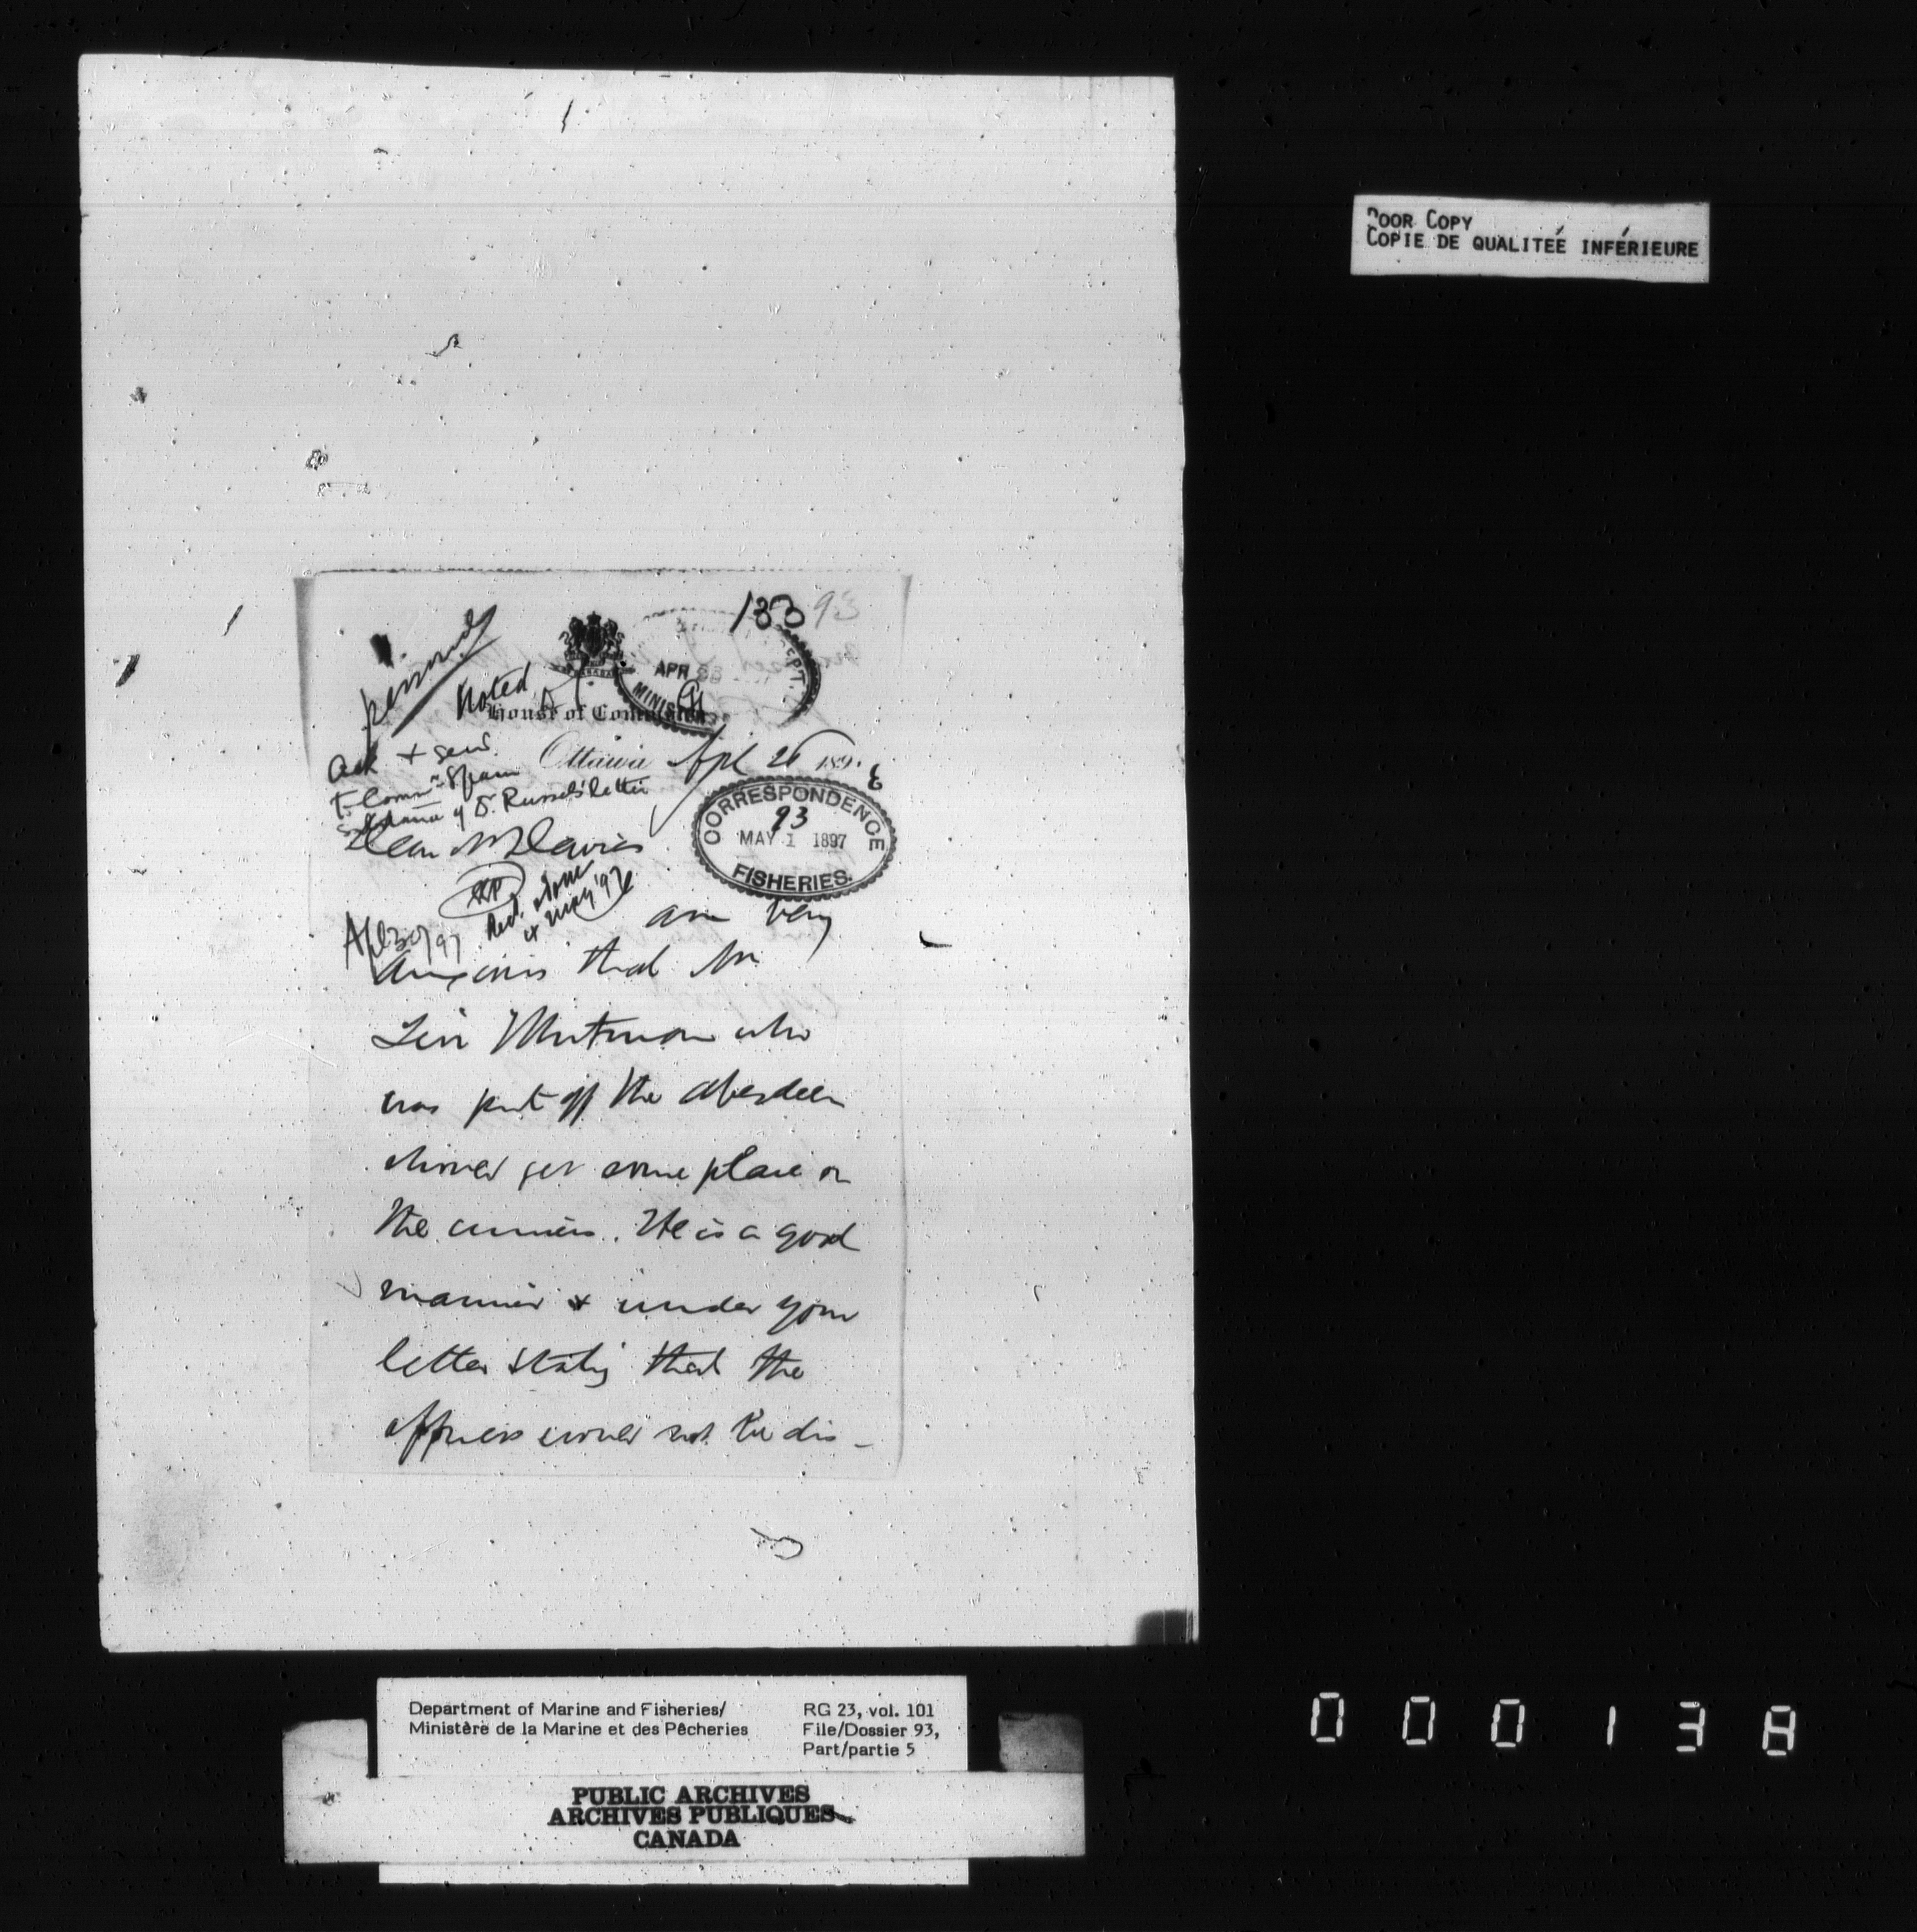 POOR COPY
COPIE DE QUALITEÉ INFÉRIEURE
133 93
personal
Noted
APR
MINIS
EPT.
House of Commons
Ottawa Apl 26 189
Ack + send
to Comm Spain
of Dr. Russel's letter
CORRESPONDENCE
93
MAY 1 1897
FISHERIES.
Dear Mr Davies
May '97
Apl 30/97
am very
anxious that Mr
who
was put off the Aberdeen
should get some place on
the cruisers. He is a good
mariner & under your
letter stating that the
officers would not be dis-
Department of Marine and Fisheries/
Ministère de la Marine et des Pêcheries
RG 23, vol. 101
File/Dossier 93,
Part/partie 5
PUBLIC ARCHIVES
ARCHIVES PUBLIQUES
CANADA
000138